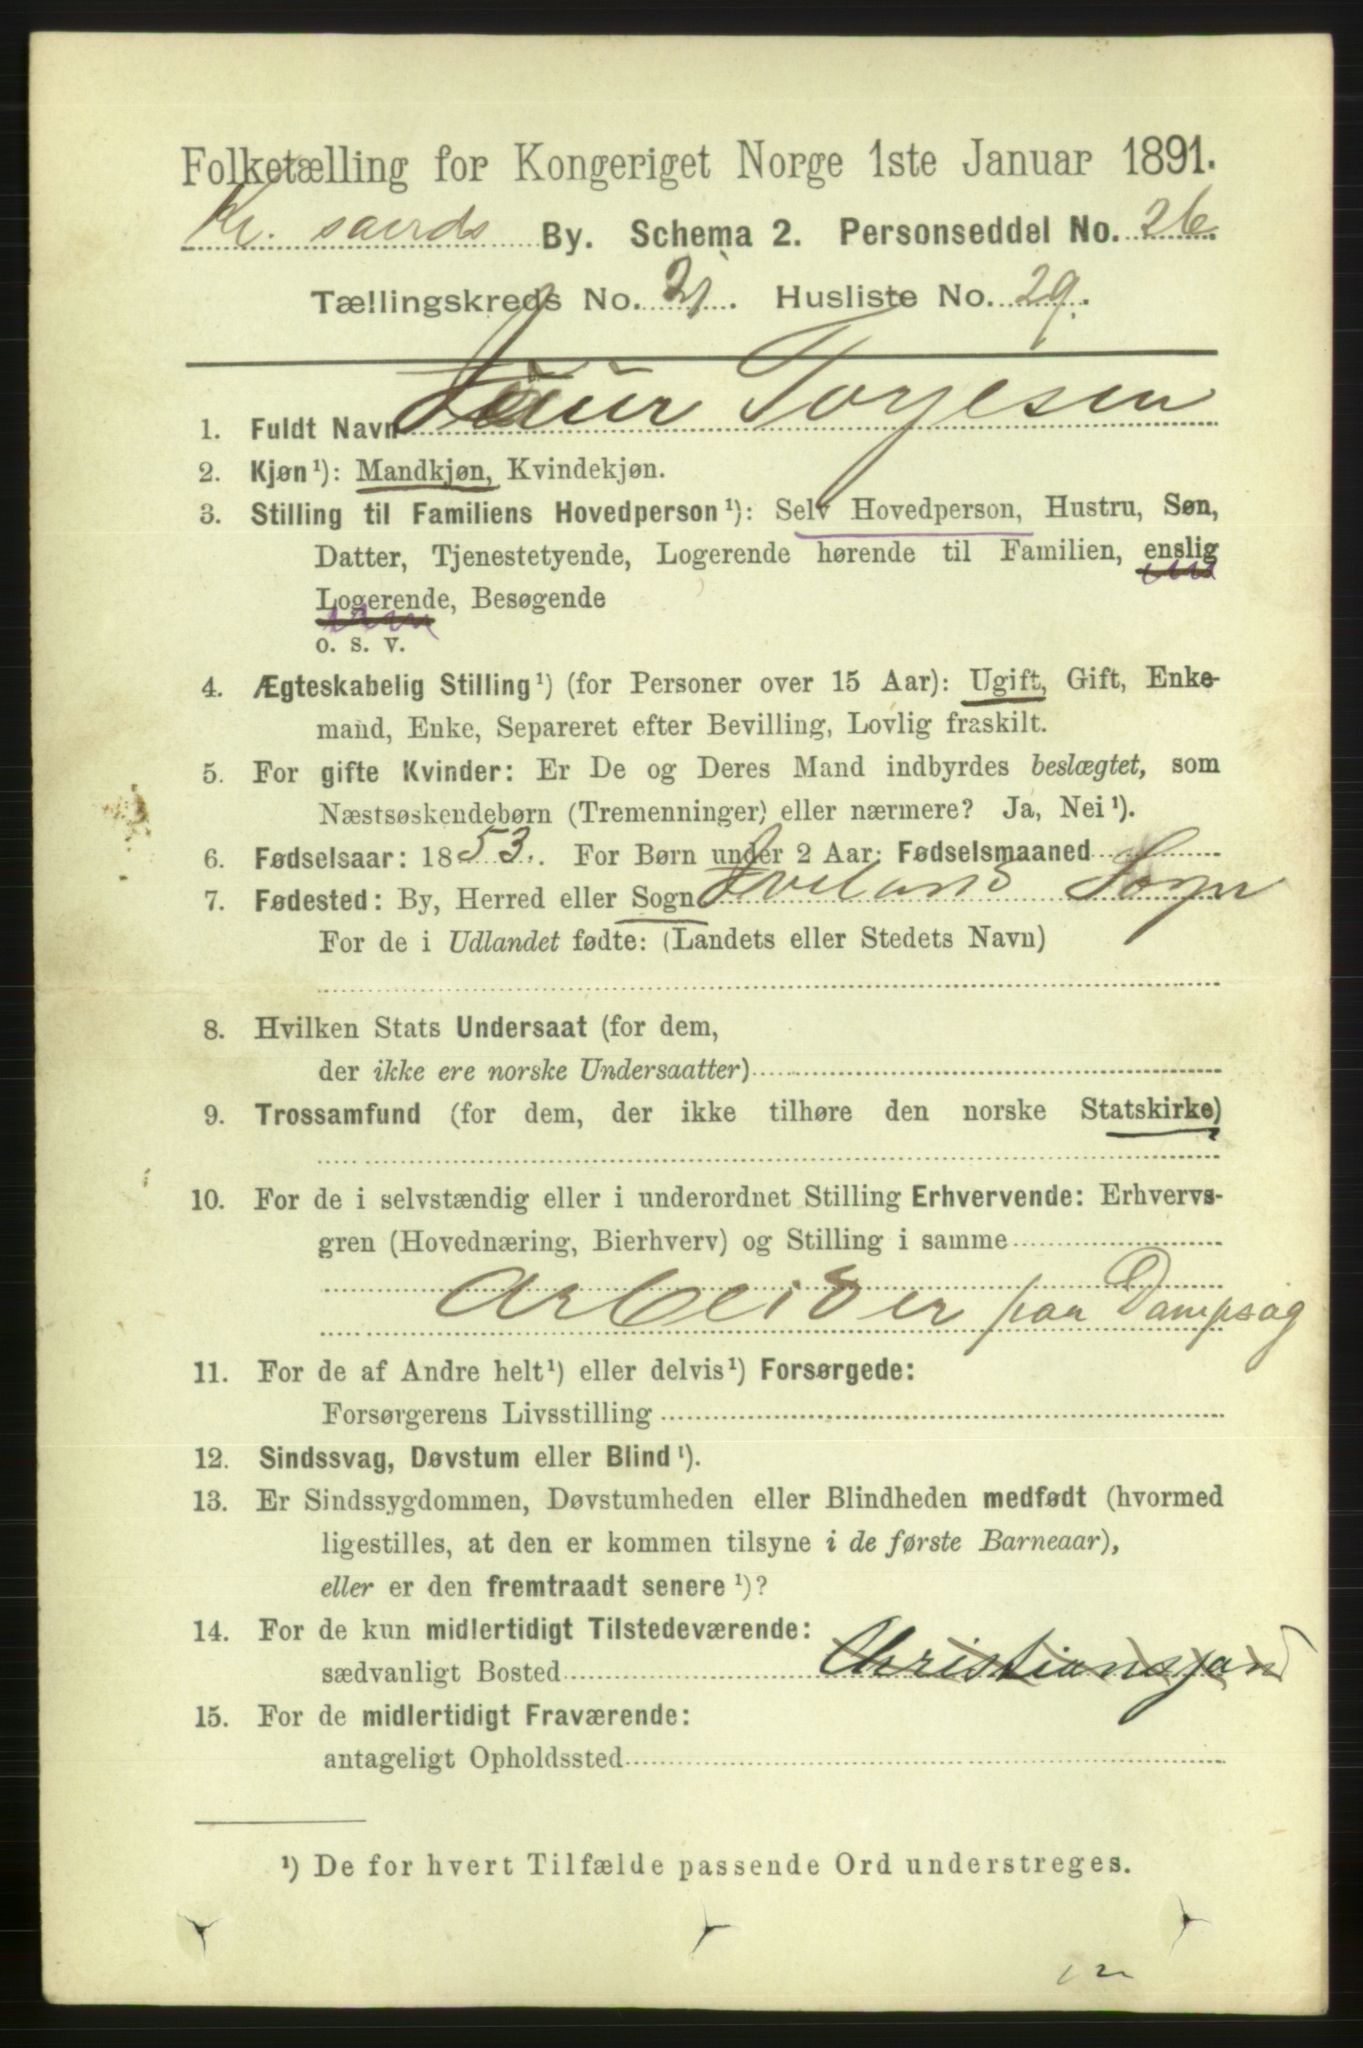 Folketælling for Kongeriget Norge 1ste Januar 1891.
Kr. sands By. Schema 2. Personseddel No. 26
Tællingskreds No. 21. Husliste No. 29.
1. Fuldt Navn Torjesen
2. Kjøn¹): Mandkjøn, Kvindekjøn.
3. Stilling til Familiens Hovedperson¹): Selv Hovedperson, Hustru, Søn,
Datter, Tjenestetyende, Logerende hørende til Familien, enslig
Logerende, Besøgende
o. s. v.
4. Ægteskabelig Stilling¹) (for Personer over 15 Aar): Ugift, Gift, Enke-
mand, Enke, Separeret efter Bevilling, Lovlig fraskilt.
5. For gifte Kvinder: Er De og Deres Mand indbyrdes beslægtet, som
Næstsøskendebørn (Tremenninger) eller nærmere? Ja, Nei¹).
6. Fødselsaar: 1853. For Børn under 2 Aar: Fødselsmaaned
7. Fødested: By, Herred eller Sogn Iveland Sogn
For de i Udlandet fødte: (Landets eller Stedets Navn)
8. Hvilken Stats Undersaat (for dem,
der ikke ere norske Undersaatter)
9. Trossamfund (for dem, der ikke tilhøre den norske Statskirke)
10. For de i selvstændig eller i underordnet Stilling Erhvervende: Erhvervs-
gren (Hovednæring, Bierhverv) og Stilling i samme
Arbeider paa Dampsag
11. For de af Andre helt¹) eller delvis¹) Forsørgede:
Forsørgerens Livsstilling
12. Sindssvag, Døvstum eller Blind¹).
13. Er Sindssygdommen, Døvstumheden eller Blindheden medfødt (hvormed
ligestilles, at den er kommen tilsyne i de første Barneaar),
eller er den fremtraadt senere¹)?
14. For de kun midlertidigt Tilstedeværende:
sædvanligt Bosted Christiansjand
15. For de midlertidigt Fraværende:
antageligt Opholdssted
¹) De for hvert Tilfælde passende Ord understreges.